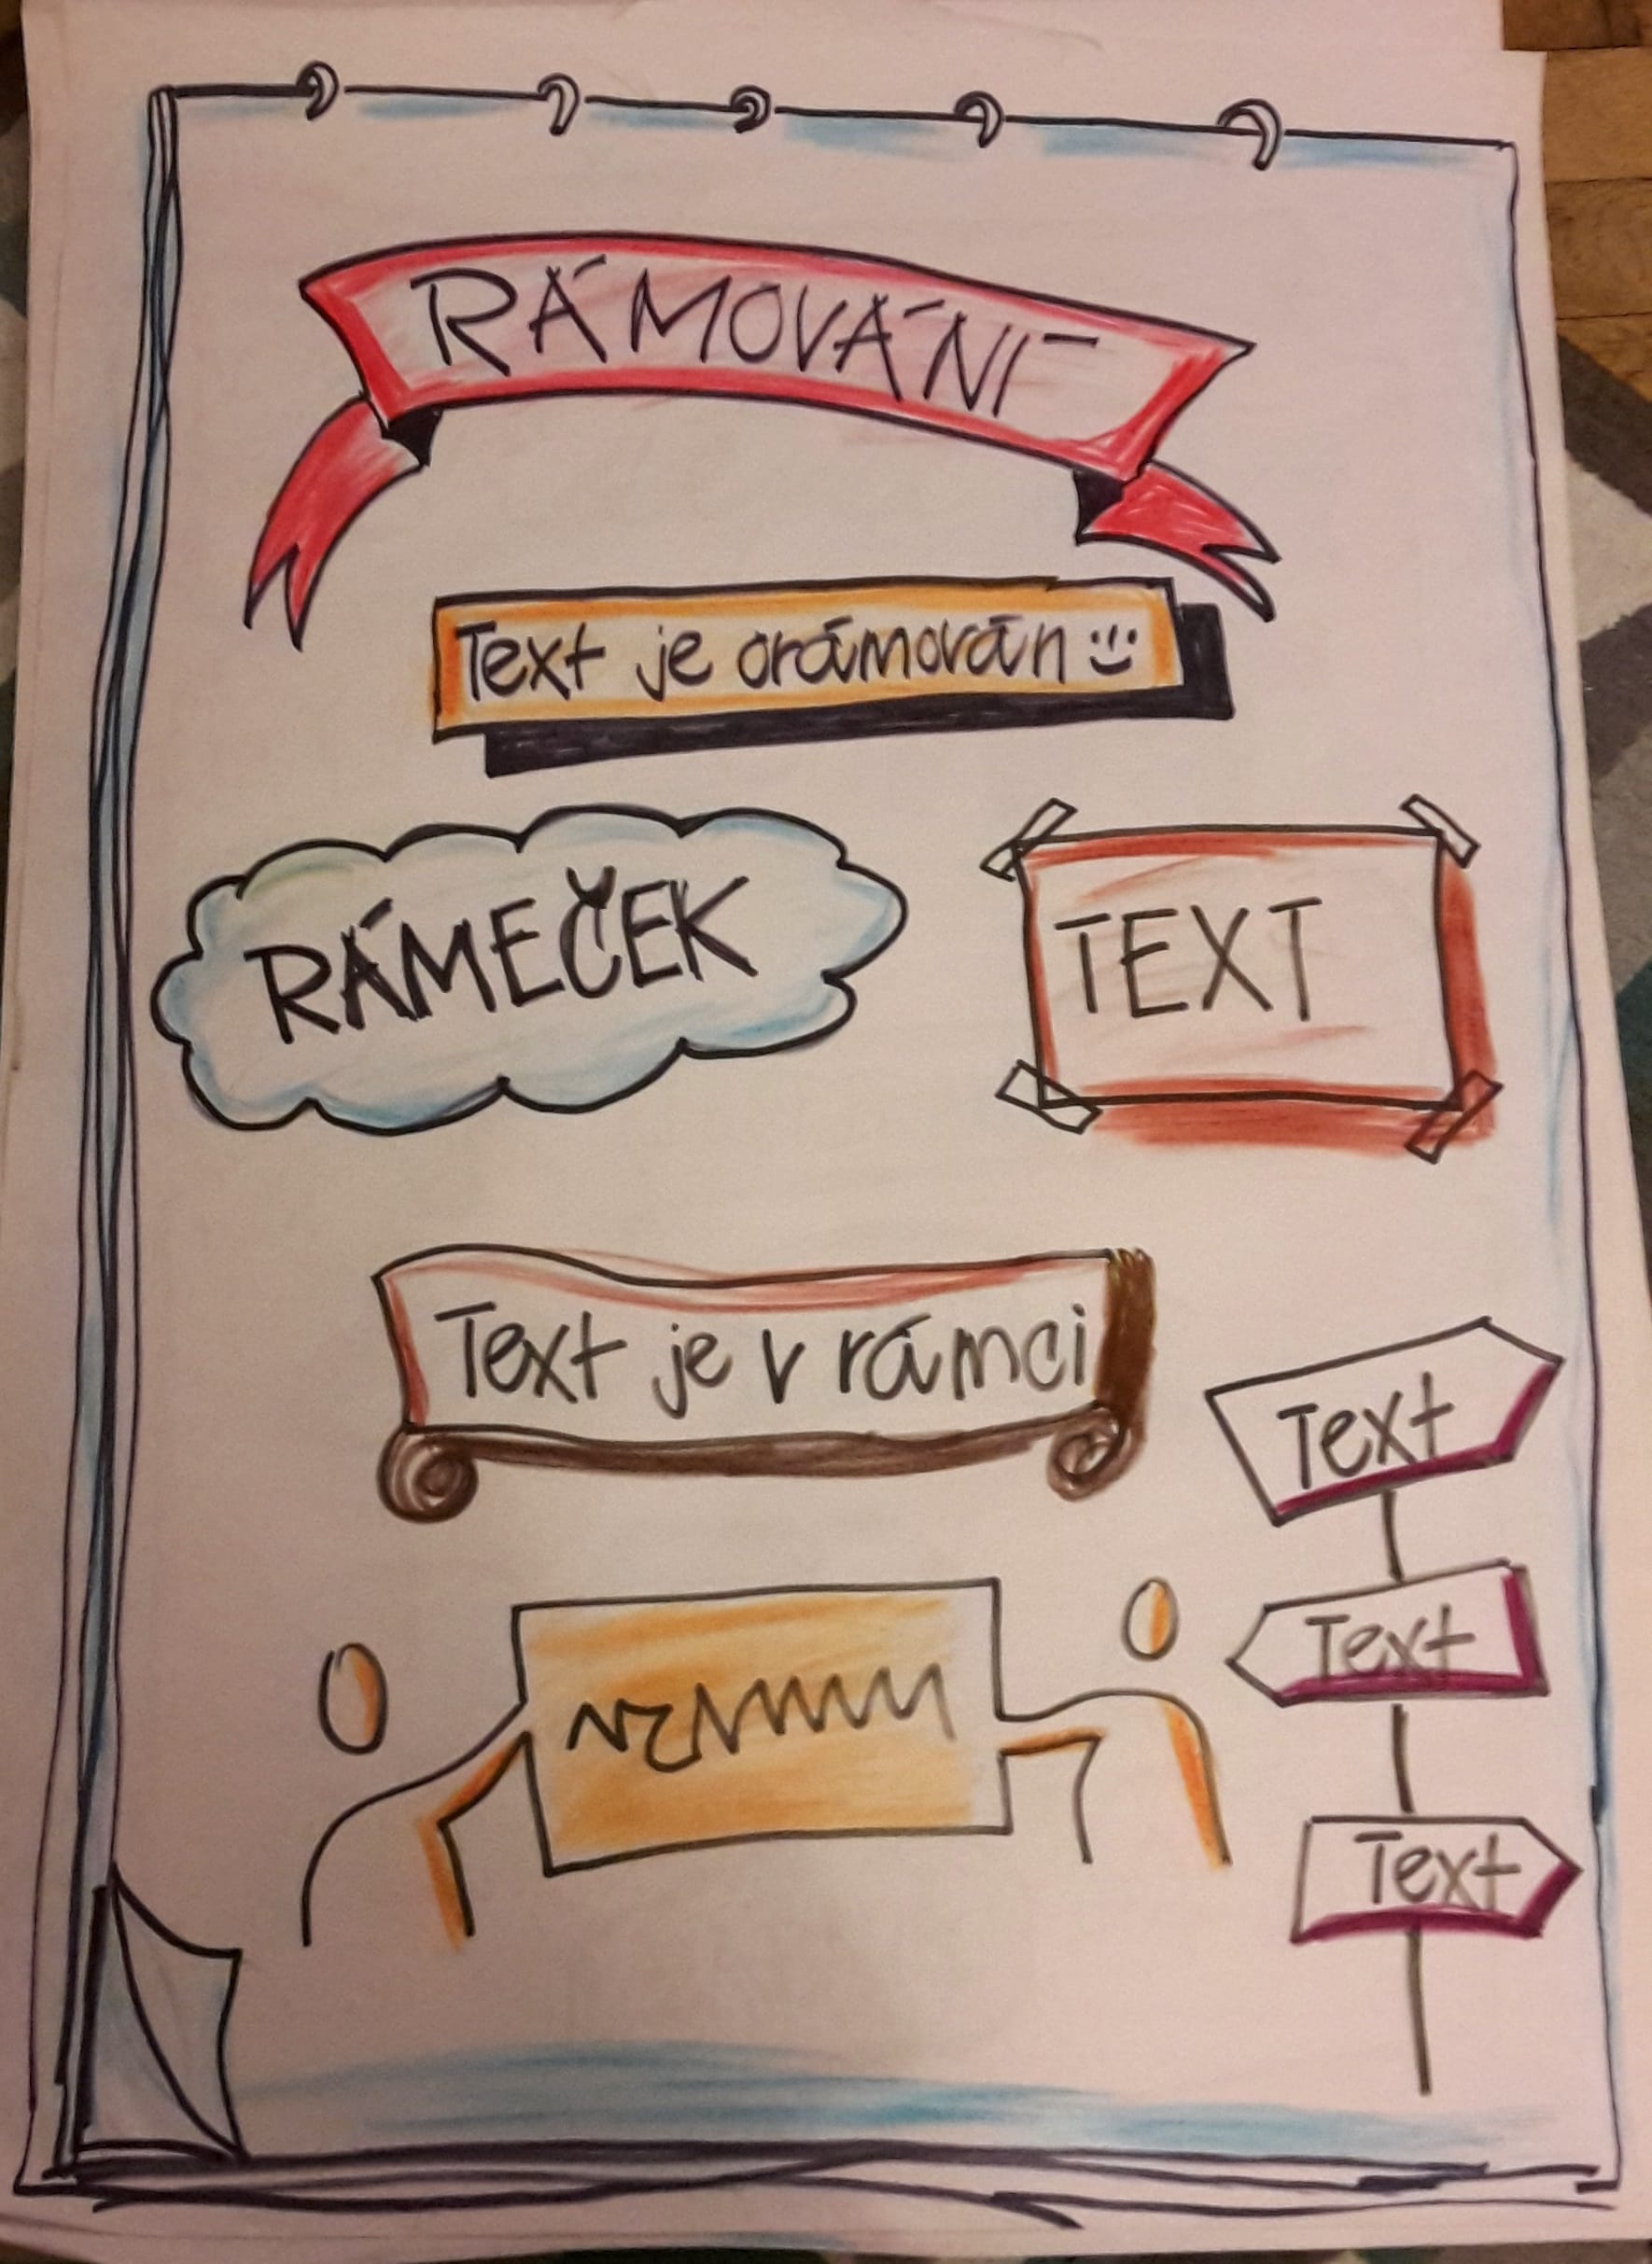 RÁMOVÁNÍ
Text je orámován :)
RÁMEČEK
TEXT
Text je v rámci
Text
Text
Text